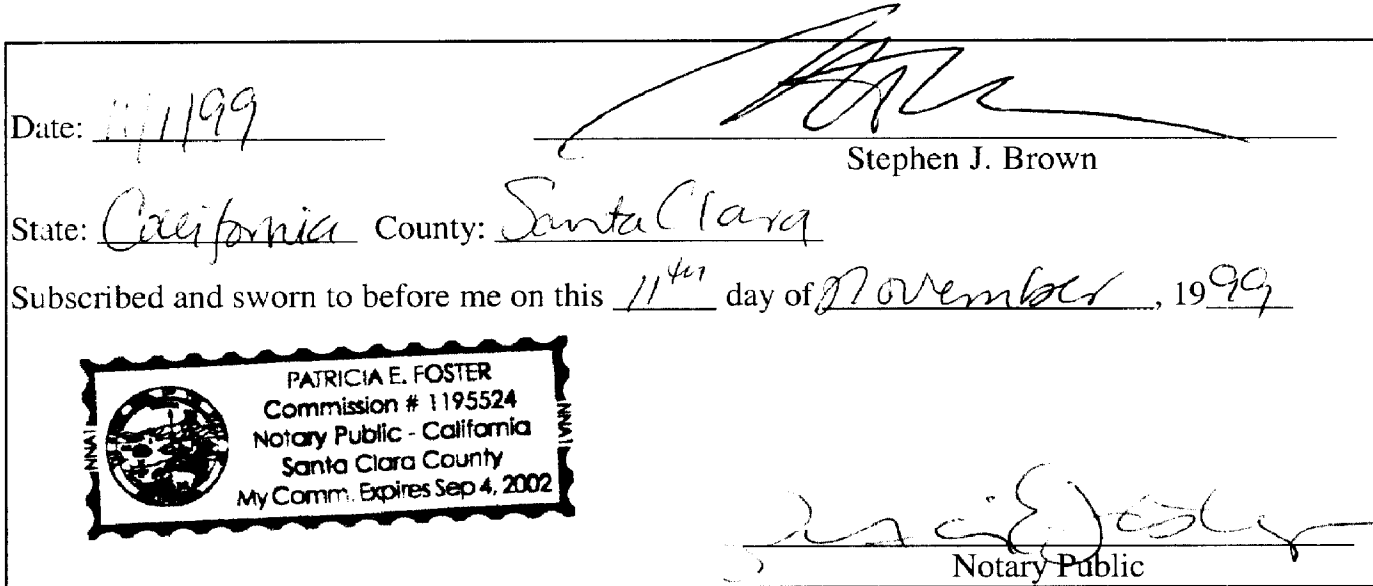 Date: 11/1/99
Stephen J. Brown
State: California County: Santa Clara
Subscribed and sworn to before me on this 11th day of November, 1999
PATRICIA E. FOSTER
Commission # 1195524
Notary Public - California
Santa Clara County
My Comm. Expires Sep 4, 2002
NNA1
NNA1
Notary Public